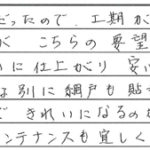 だったので、工期が
が こちらの要望
いに仕上がり 安い
は別に網戸も貼
で きれいになるのか
ンテナンスも宜しく